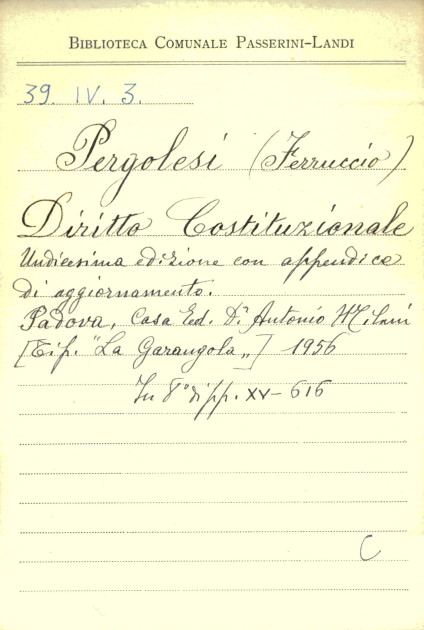 BIBLIOTECA COMUNALE PASSERINI-LANDI
39. IV. 3.
Pergolesi (Ferruccio)
Diritto Costituzionale
Undicesima edizione con appendice
di aggiornamento.
Padova, Casa Ed. Dr. Antonio Milani
[Tip. "La Garangola„] 1956
In 8° di pp. XV-616
C